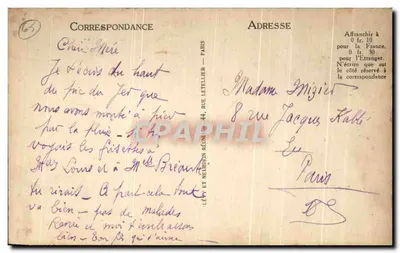 65
CORRESPONDANCE
ADRESSE
Affranchir à
0 fr. 10
pour la France.
0 fr. 30
pour l'Étranger.
N'écrire que sur
le côté réservé à
la correspondance
Chère Mère
Je t'écris du haut
du pic du Jer que
nous avons monté à pied
par la pluie si tu
voyais les frisettes à
Mary Louise et à Mlle
tu rirais - A part cela tout
va bien - pas de malades
René et moi t'embrassons
bien - Ton fils qui t'aime
LÉVY ET NEURDEIN RÉUNIS, 44, RUE LETELLIER - PARIS
Madame
8 rue Jacques
Paris
PHILA